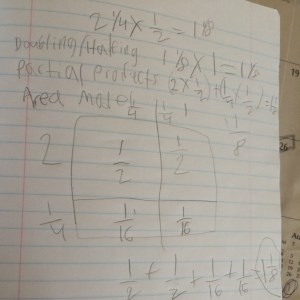 2 1/4 X 1/2 = 1 1/8
Doubling/Halving 1 1/8 X 1 = 1 1/8
Partial Products (2 X 1/2) + (1/4 X 1/2) = 1 1/8
Area Model
1/4 1/4
1 1/8
2 1/2 1/2
1/4 1/16 1/16
1/2 + 1/2 + 1/16 + 1/16 = 1 1/8